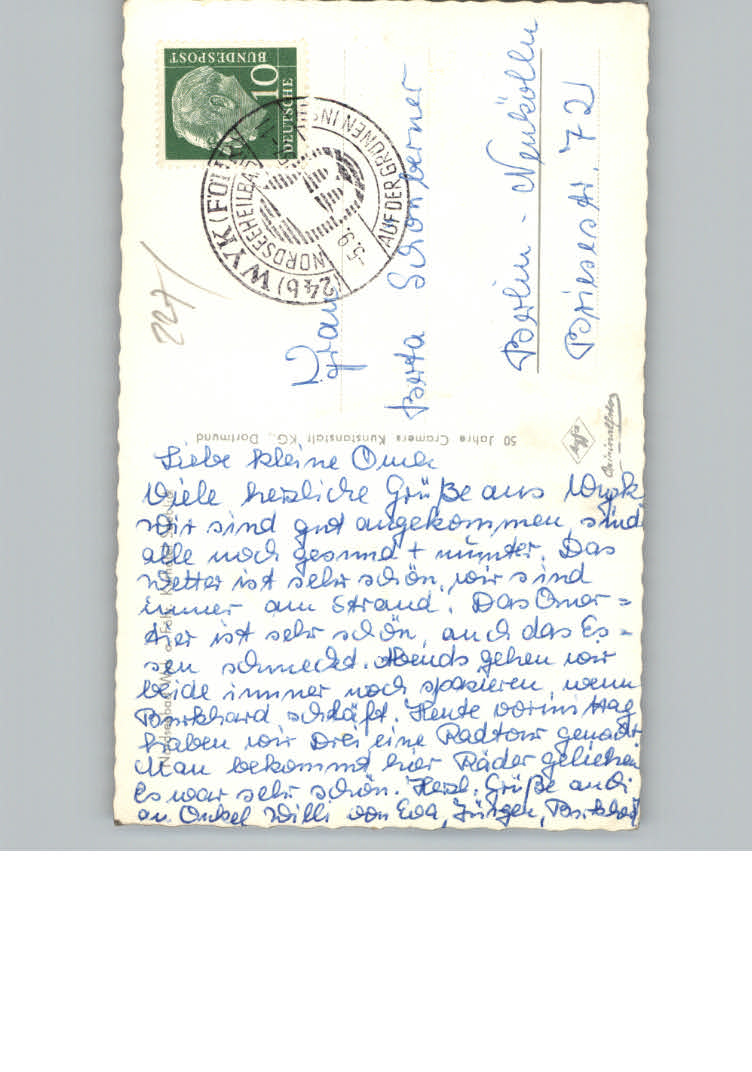 DEUTSCHE
BUNDESPOST
10
(24b) WYK (FÖHR)
NORDSEEHEILBAD
AUF DER GRÜNEN INSEL
-5.9.
227
Frau
Berta Schönberner
Berlin - Neukölln
Briesestr. 72
50 Jahre Cramers Kunstanstalt KG., Dortmund
Agfa
Originalfoto
Liebe kleine Oma
Viele herzliche Grüße aus Wyk
wir sind gut angekommen, sind
alle noch gesund + munter. Das
Wetter ist sehr schön, wir sind
immer am Strand. Das Quar=
tier ist sehr schön, auch das Es=
sen schmeckt. Abends gehen wir
beide immer noch spazieren, wenn
Burkhard schläft. Heute vormittag
haben wir Drei eine Radtour gemacht
Man bekommt hier Räder geliehen
Es war sehr schön. Herzl. Grüße auch
an Onkel Willi von Eva, Jürgen, Burkhard
Nordseebad Wyk a. Föhr